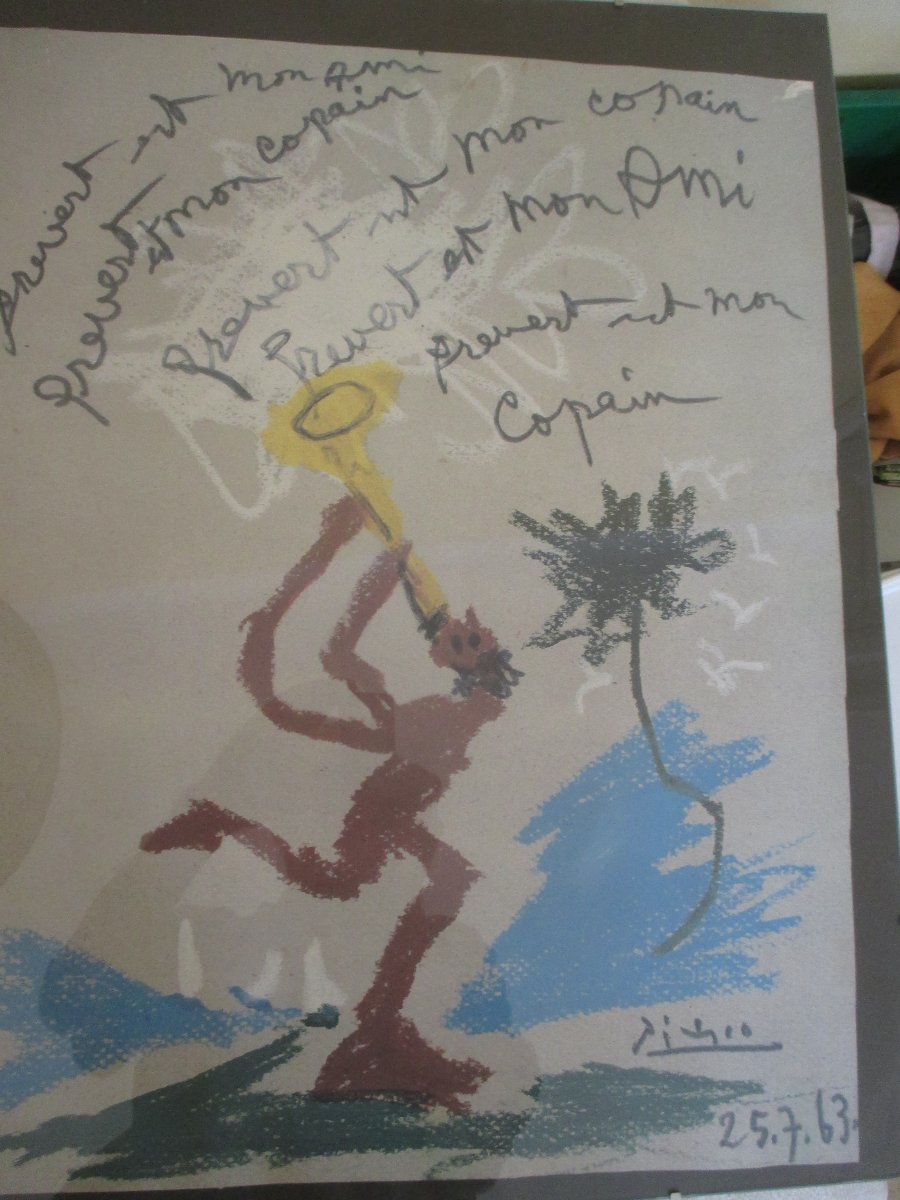 prevert est mon Ami
prevert est mon copain
prevert est mon copain
prevert est mon Ami
prevert est mon
Copain
Picasso
25.7.63.